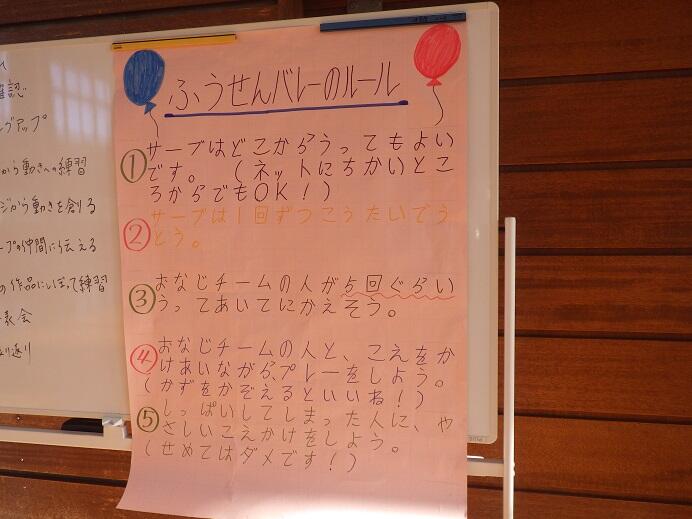 確認
グアップ
から動きへの練習
ジから動きを創る
ープの仲間に伝える
の作品にしぼって練習
表会
り返り
ふうせんバレーのルール
①サーブはどこからうってもよい
です。(ネットにちかいとこ
ろからでもOK!)
②サーブは1回ずつこうたいでう
とう。
③おなじチームの人が5回ぐらい
うってあいてにかえそう。
④おなじチームの人と、こえをか
けあいながら、プレーをしよう。
(かずをかぞえるといいね!)
⑤しっぱいしてしまった人に、や
さしいこえかけをしよう。
(せめてはダメです!)